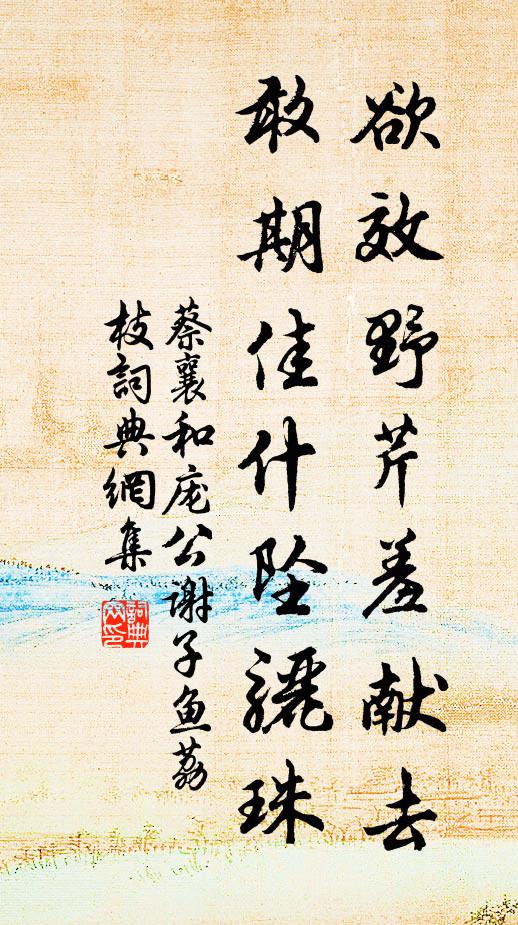 欲效野芹羞献去
敢期佳什坠骊珠
蔡襄和庞公谢子鱼荔
枝詞典網集
詞典网印